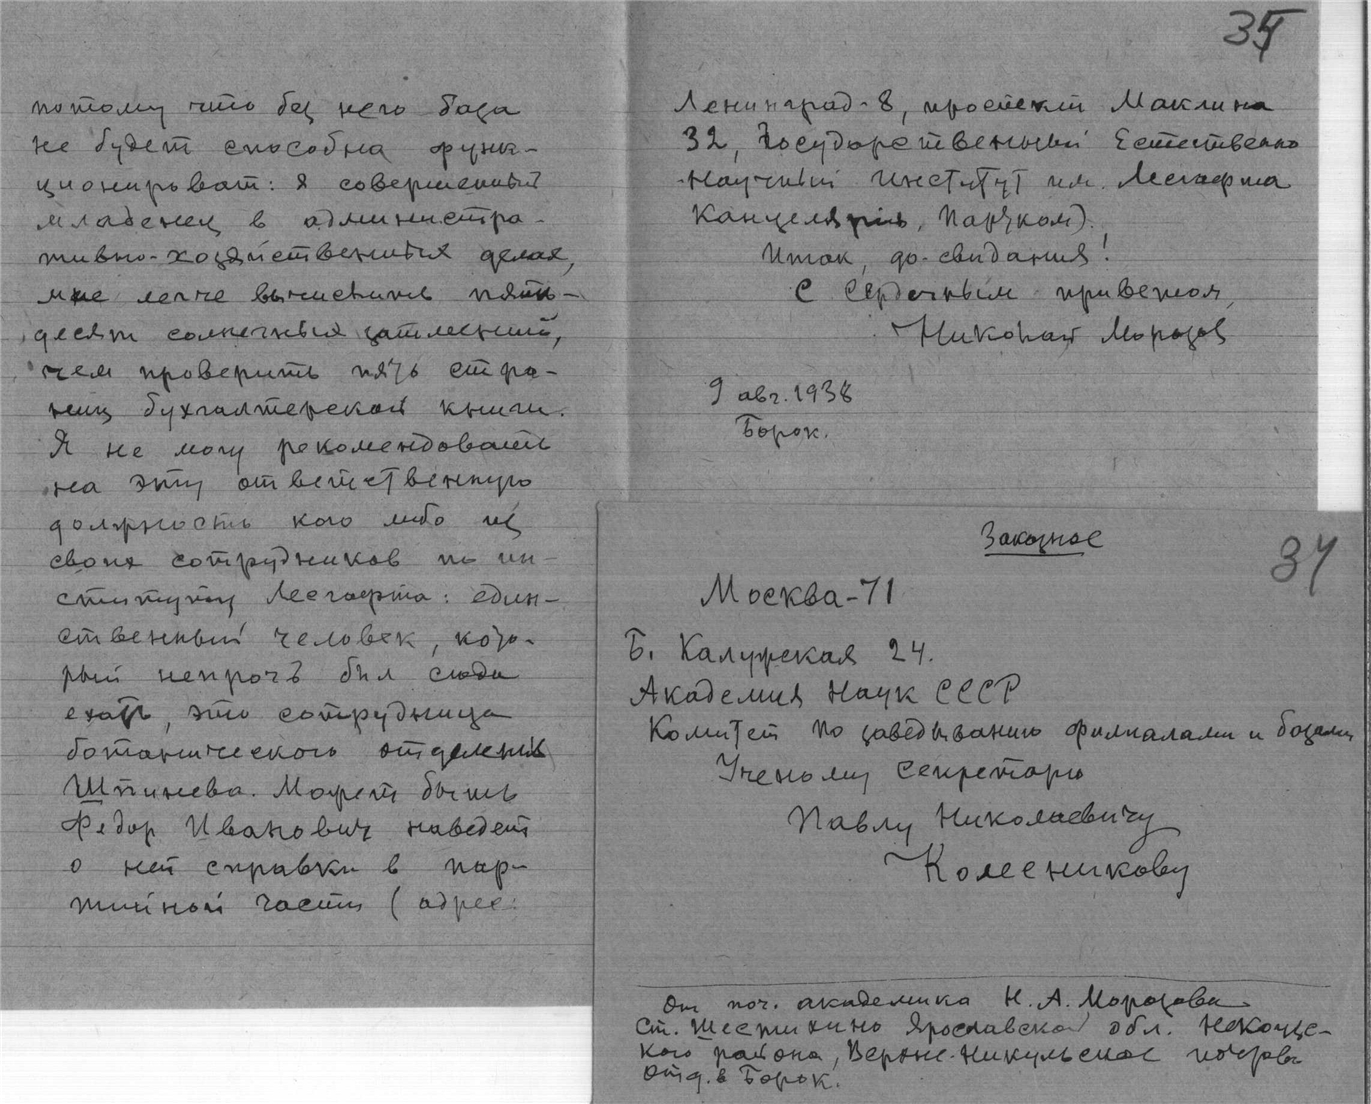 потому что без него база
не будет способна функ-
ционировать: я совершенный
младенец в администра-
тивно-хозяйственных делах,
мне легче вычислить пять-
десят солнечных затмений,
чем проверить пять стра-
ниц бухгалтерской книги.
Я не могу рекомендовать
на эту ответственную
должность кого либо из
своих сотрудников по ин-
ституту Лесгафта: един-
ственный человек, кото-
рый непрочь был сюда
ехать, это сотрудница
ботанического отделения
Шпинева. Может быть
Федор Иванович наведет
о ней справки в пар-
тийной части (адрес:
35
Ленинград-8, проспект Маклина
32, Государственный Естественно
-научный институт им. Лесгафта
Канцелярия, Парткom).
Итак, до-свидания!
С сердечным приветом,
Николай Морозов
9 авг. 1938
Борок.
34
Заказное
Москва-71
Б. Калужская 24.
Академия Наук СССР
Комитет по заведыванию филиалами и базами
Ученому секретарю
Павлу Николаевичу
Колесникову
От поч. академика Н. А. Морозова
ст. Шестихино Ярославской обл. Некоузс-
кого района, Верхне-Никульское почтов.
отд. в Борок.